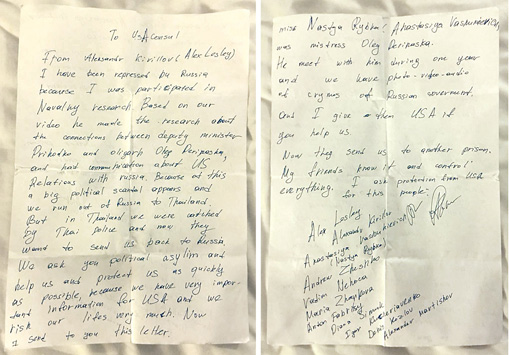 To USA Consul
From Aleksandr Kirillov (Alex Lesley)
I have been repressed by Russia
because I was participated in
Navalny research. Based on our
video he made the research about
the connections between deputy minister
Prihodko and oligarh Oleg Deripaska,
and had communication about US
Relations with russia. Because of this
a big political scandal appears and
we run out of Russia to Thailand.
But in Thailand we were catched
by Thai police and now they
wand to send us back to Russia.
We ask you political asylim and
help us and protect us as quickly
as possible, because we have very impor-
tand information for USA and we
risk our lifes very much. Now
I send to you this letter.
miss Nastya Rybka (Anastasiya Vashukevich)
was mistress Oleg Deripaska.
He meet with him during one year
and we have photo-video-audio
of cryms of Russian goverment.
And I give them USA if
you help us.
Now they send us to another prison.
My friends know it and control
everything. I ask protection from USA
for this people:
Alex Lesley
Alexandr Kirillov
Anastasiya Vashukevich
(Nastya Rybka)
Andrew
Vadim
Maria
Anton
Diana
Igor
Denis Kozlov
Alexander